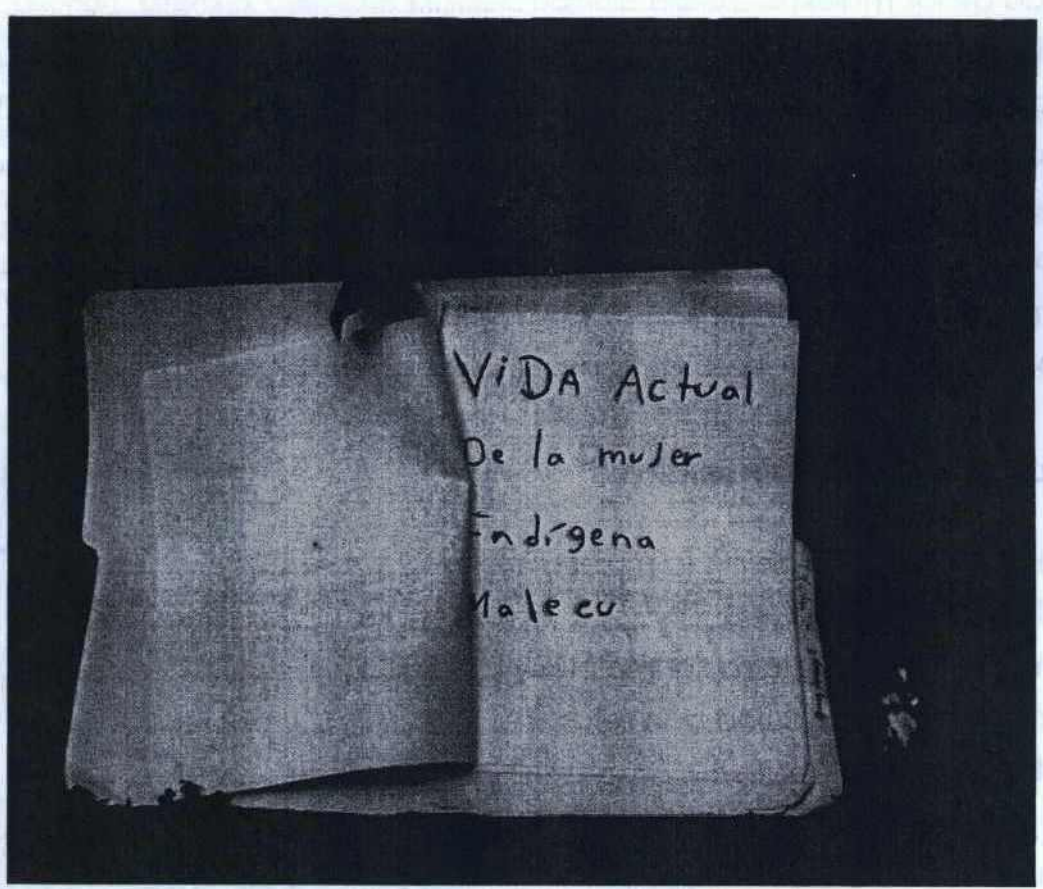 ViDA Actual
De la muJer
Indígena
Malecu